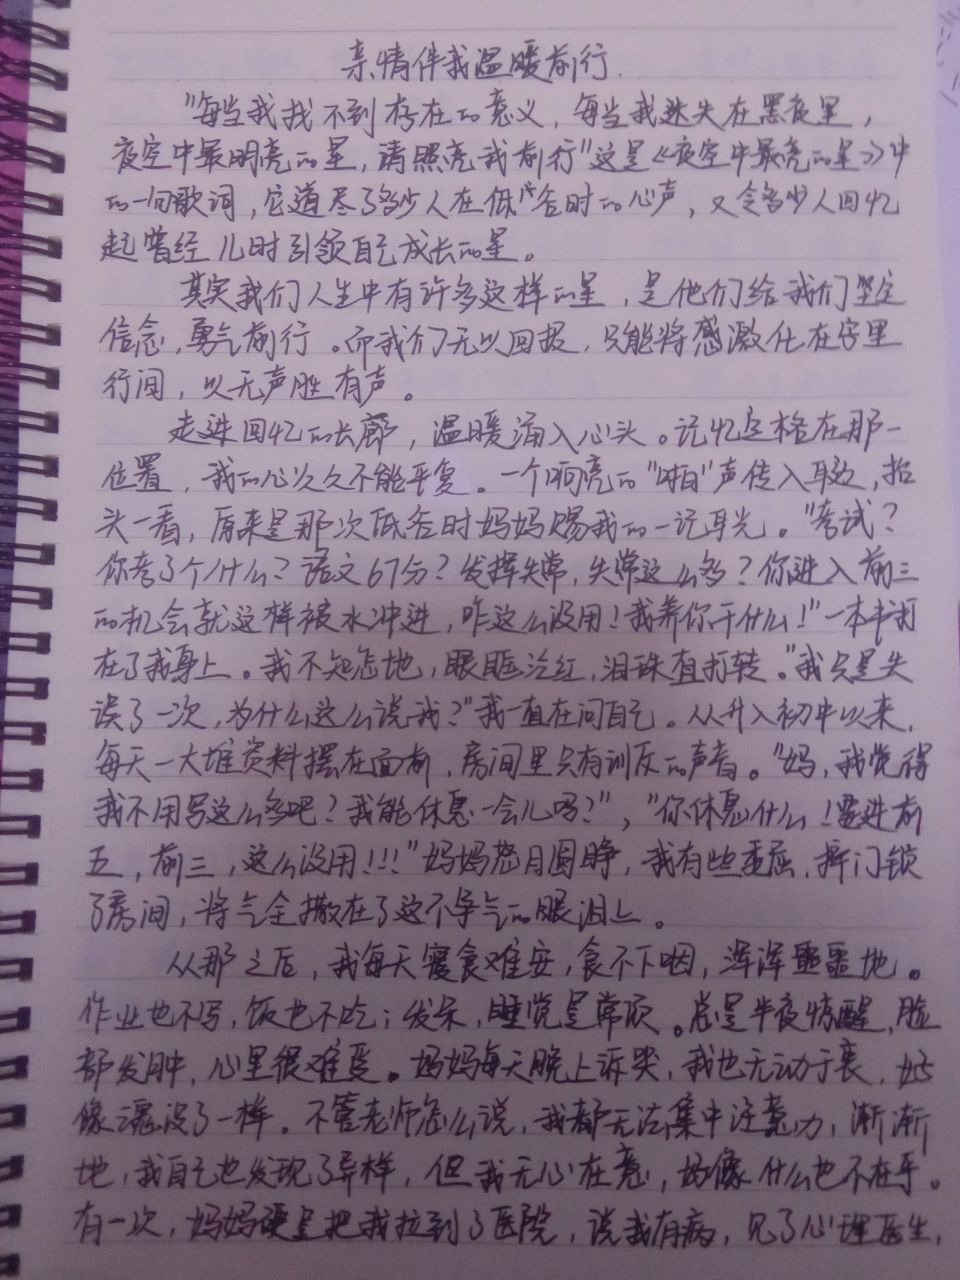 亲情伴我温暖前行.
"每当我找不到存在的意义，每当我迷失在黑夜里，
夜空中最明亮的星，请照亮我前行"这是《夜空中最亮的星》中
的一句歌词，它道尽了多少人在低谷时的心声，又令多少人回忆
起曾经儿时引领自己成长的星。
其实我们人生中有许多这样的星，是他们给我们坚定
信念，勇气前行。而我们无以回报，只能将感激化在字里
行间，以无声胜有声。
走进回忆的长廊，温暖涌入心头。记忆定格在那一
位置，我的心久久不能平复。一个响亮的"啪"声传入耳边，抬
头一看，原来是那次低谷时妈妈赐我的一记耳光。"考试？
你考了个什么？语文67分？发挥失常，失常这么多？你进入前三
的机会就这样被水冲进，咋这么没用！我养你干什么！"一本书打
在了我身上。我不知怎地，眼眶泛红，泪珠直打转。"我只是失
误了一次，为什么这么说我？"我一直在问自己。从升入初中以来，
每天一大堆资料摆在面前，房间里只有训斥的声音。"妈，我觉得
我不用写这么多吧？我能休息一会儿吗？"，"你休息什么！要进前
五，前三，这么没用！！！"妈妈怒目圆睁，我有些委屈，摔门锁
了房间，将气全撒在了这不争气的眼泪上。
从那之后，我每天寝食难安，食不下咽，浑浑噩噩地。
作业也不写，饭也不吃；发呆，睡觉是常项。总是半夜惊醒，脸
部发肿，心里很难受。妈妈每天晚上诉哭，我也无动于衷，好
像魂没了一样。不管老师怎么说，我都无法集中注意力，渐渐
地，我自己也发现了异样，但我无心在意，好像什么也不在乎。
有一次，妈妈硬是把我拉到了医院，说我有病，见了心理医生，